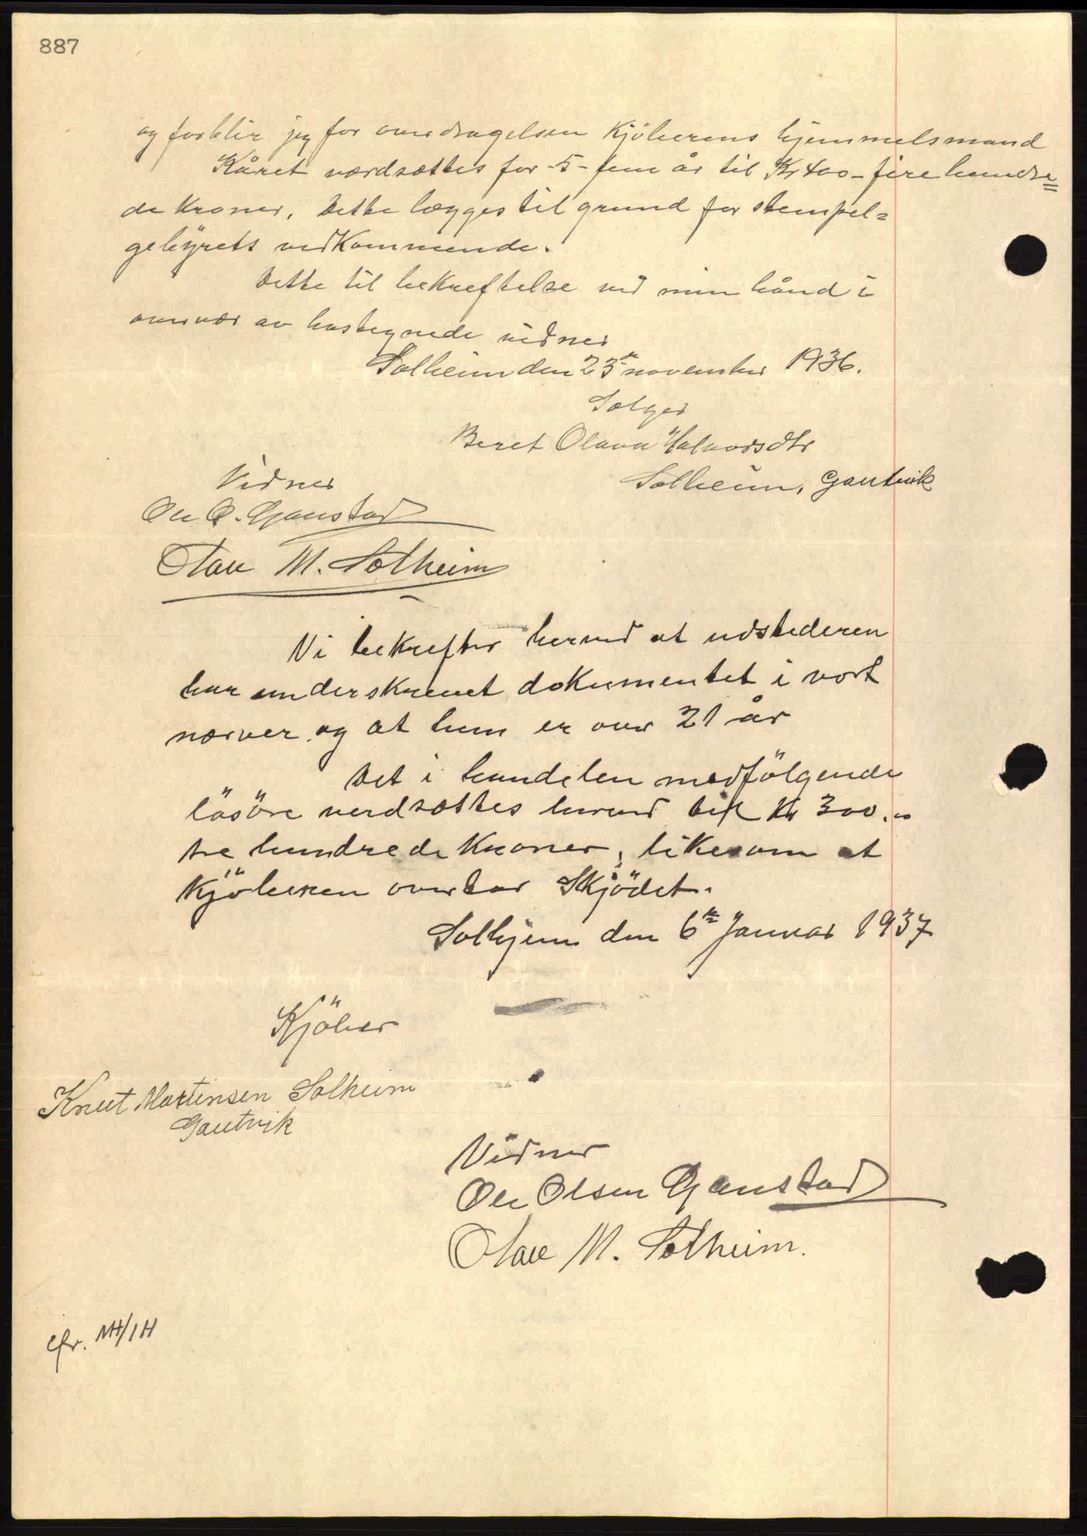 887
og forblir jeg for overdragelsen kjöberens hjemmelsmand
Kåret værdsættes for -5- fem år til Kr 400 - fire hundre=
de kroner. Dette lægges til grund for stempel=
gebyrets vedkommende.
Dette til bekreftelse ved min hånd i
overvær av hostegnede vidner
Solheim den 23de november 1936.
Selger
Beret Olava Halvorsdtr
Solheim, Gautvik
Vidner
Ole O. Gaustad
Olav M. Solheim
Vi bekrefter herved at udstederen
har underskrevet dokumentet i vort
nærver og at hun er over 21 år
Det i handelen medfölgende
lösöre verdsættes herved til Kr 300.-
tre hundrede kroner, likesom at
kjöberen overtar Skjödet.
Solhjem den 6te Januar 1937
Kjöber
Knut Martinsen Solheim
Gautvik
Vidner
Ole Olsen Gaustad
Olav M. Solheim.
cfr. MH/IH